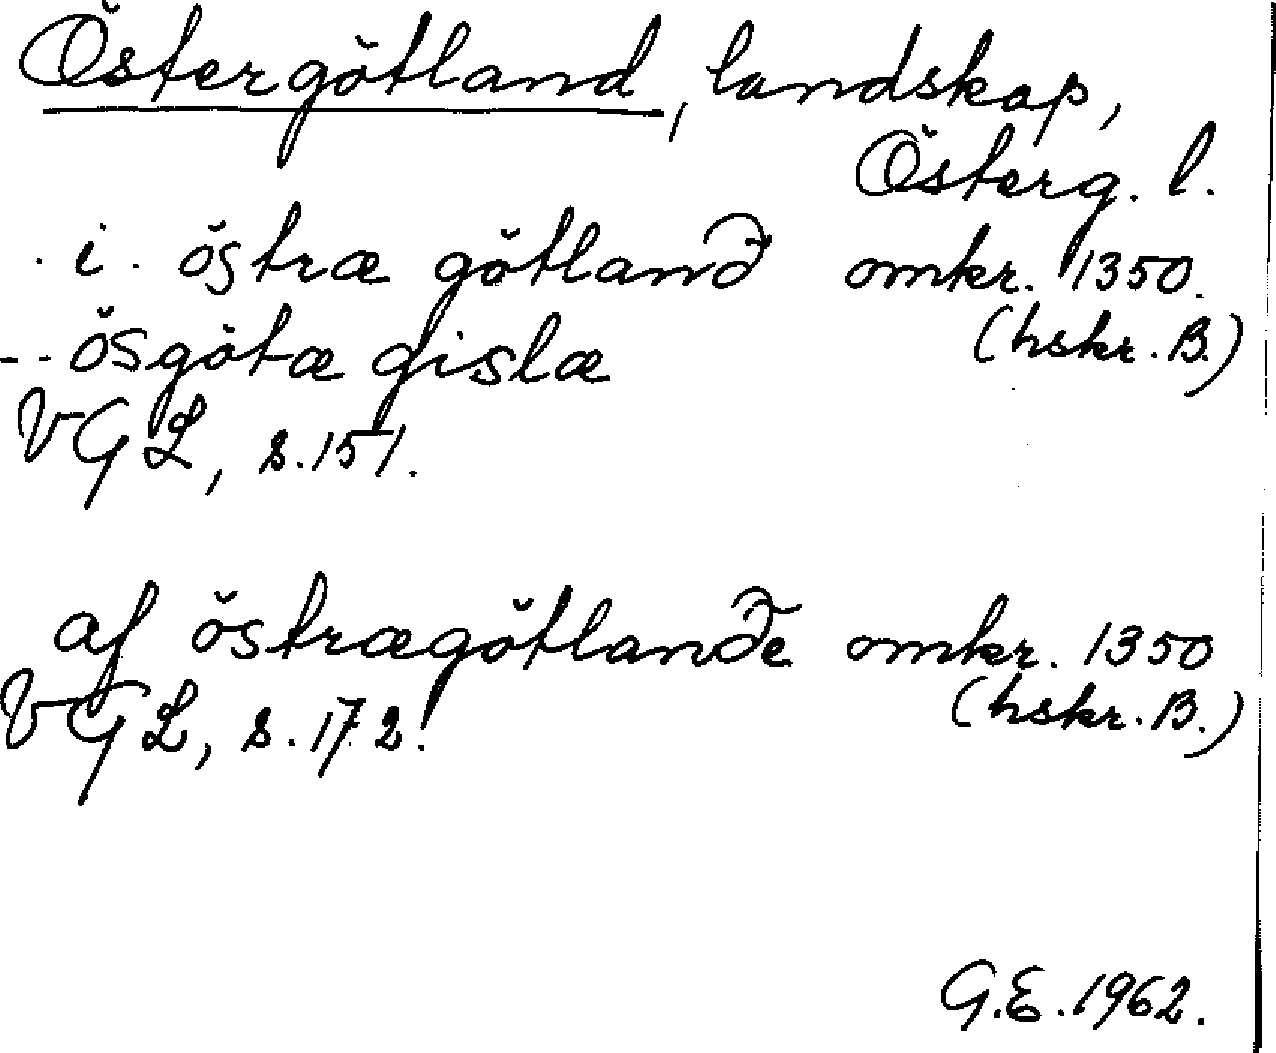 Östergötland, landskap,
Österg. l.
. i . östræ götland omkr. 1350.
(hskr. B.)
-- ösgötæ gislæ
VGL, s. 151.
af östrægötlande omkr. 1350
(hskr. B.)
VGL, s. 172.
G.E. 1962.